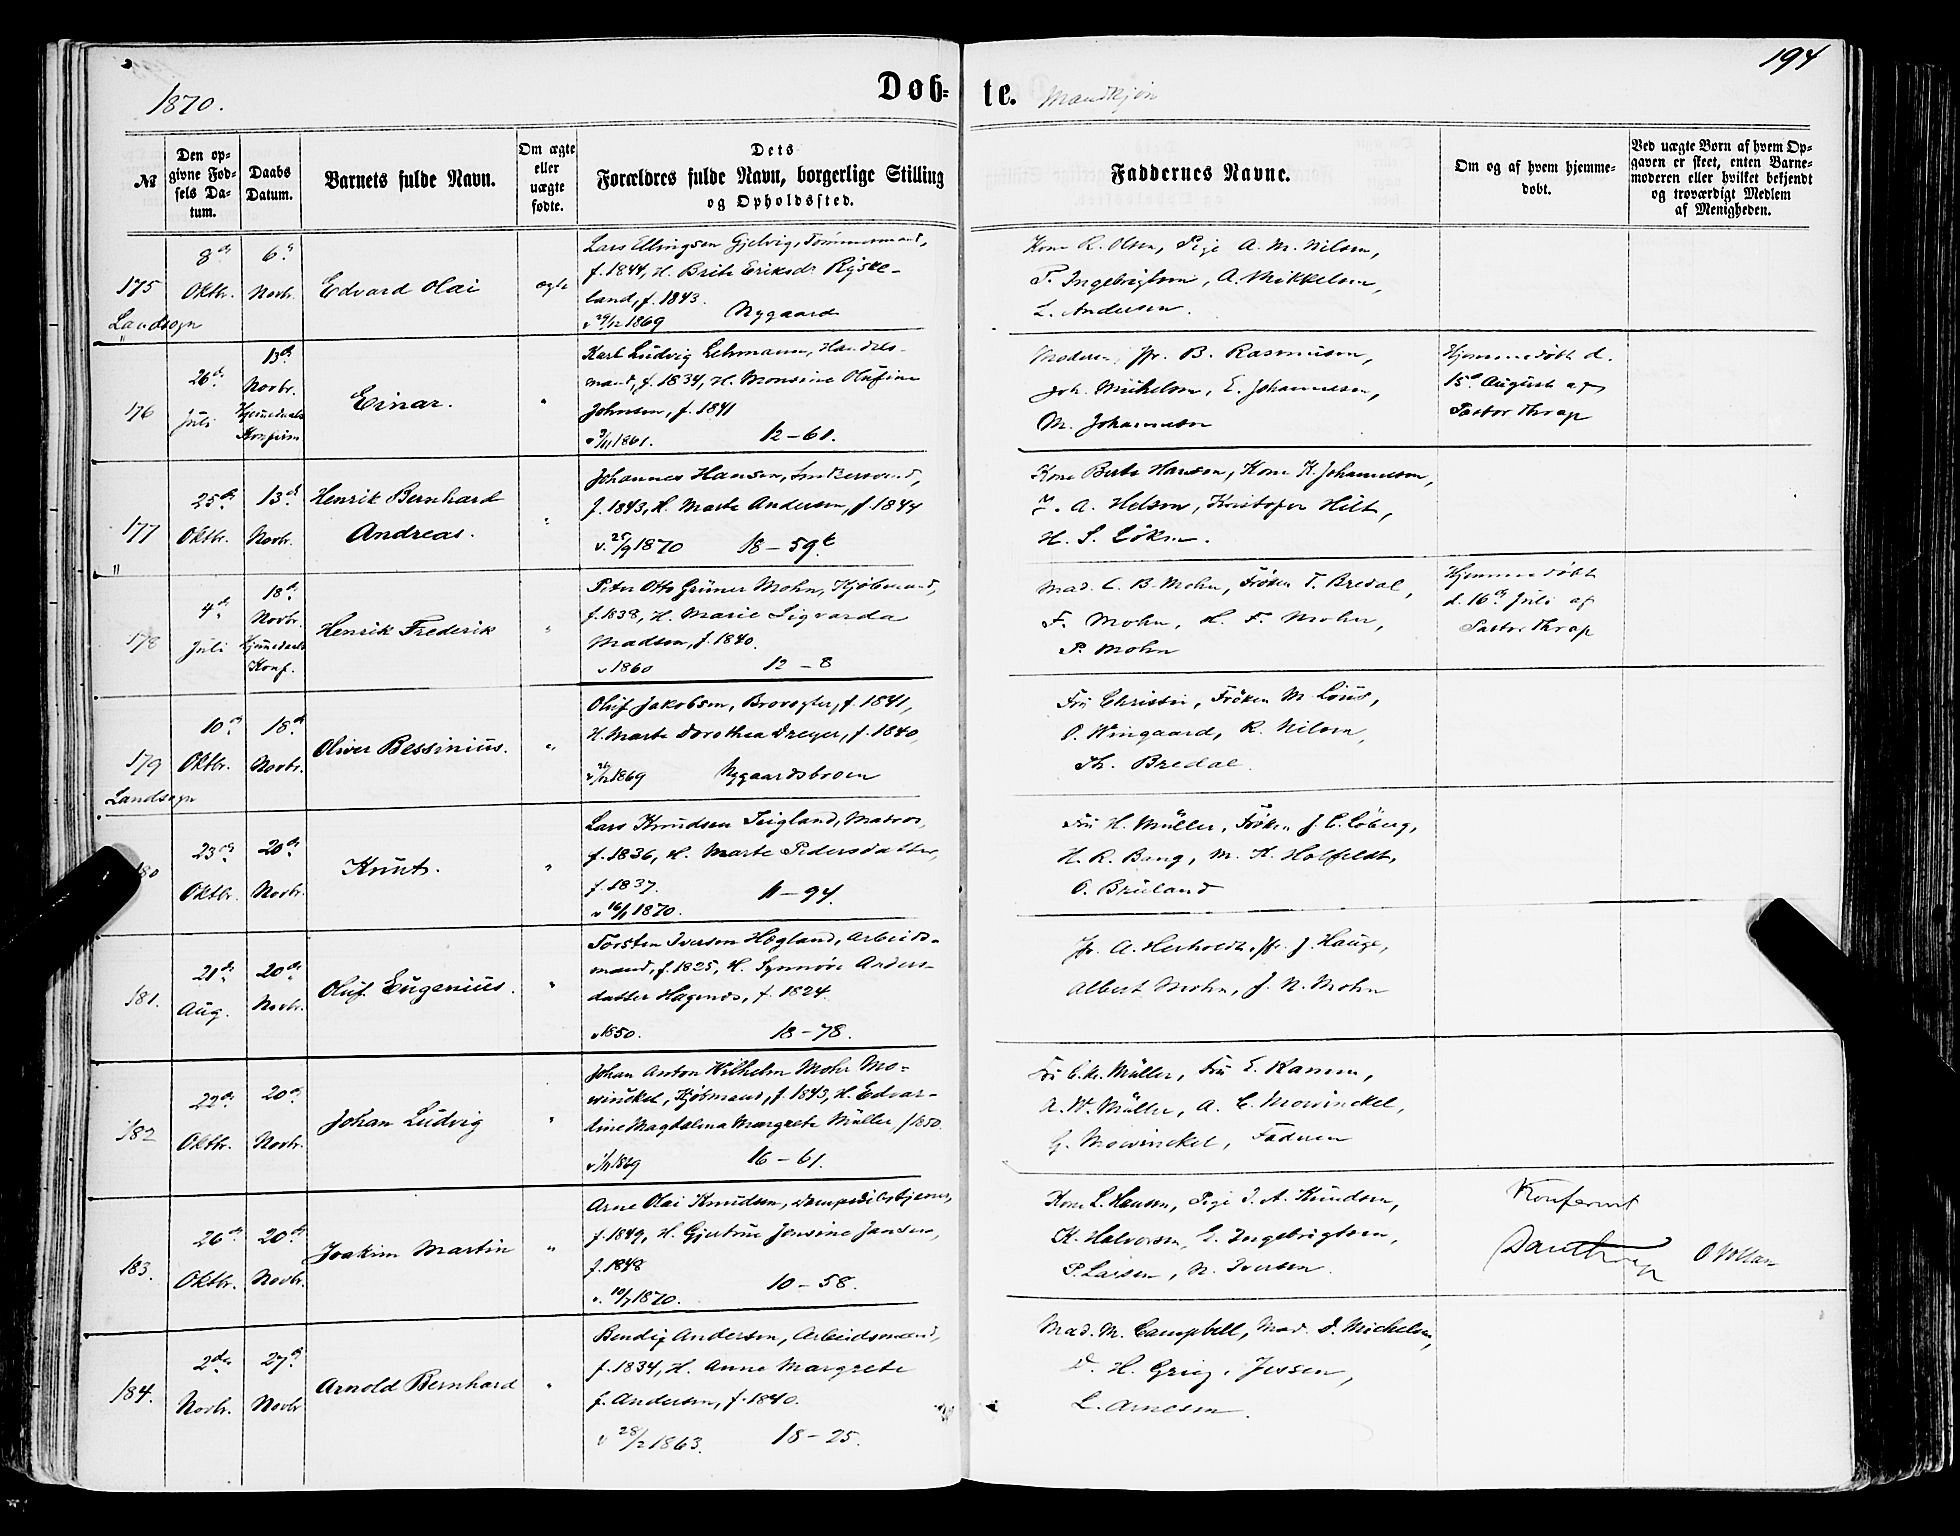 194
1870.
Døb=
te. Mandkjøn
№
Den op-
givne Fød-
sels Da-
tum.
Daabs
Datum.
Barnets fulde Navn.
Om ægte
eller
uægte
fødte.
Dets
Forældres fulde Navn, borgerlige Stilling
og Opholdssted.
Faddernes Navne.
Om og af hvem hjemme-
døbt.
Ved uægte Børn af hvem Op-
gaven er skeet, enten Barne-
moderen eller hvilket bekjendt
og troværdigt Medlem
af Menigheden.
175
Landsogn
8de
Oktbr.
6te
Novbr.
Edvard Olai
ægte
Lars Ellingsen Gjelvig, Tømmermand,
f. 1844, H. Brite Eriksdr Ryske-
land, f. 1843.
v 29/12 1869 Nygaard
Kone R. Olsen, Pige A. M. Nilsen,
P. Ingebrigtsen, A. Mikkelsen,
L. Andersen.
"
176
26de
Juli
13de
Novbr.
Hjemmedaabs
Konfirm
Einar.
"
Karl Ludvig Lehmann, Handels-
mand, f. 1834, H. Monsine Olufine
Johnsen, f. 1841
1861. 12-61.
Moderen, Jfr. B. Rasmusen,
Joh. Mikkelsen, E. Johannesen,
M. Johannesen
Hjemmedøbt d.
15de August af
Pastor Thrap
177
"
25de
Oktbr.
13de
Novbr.
Henrik Bernhard
Andreas.
"
Johannes Hansen,
f. 1843, H. Marte Andersen, f. 1844
v. 25/9 1870 18-59b
Kone Berte Hansen, Kone K. Johannesen,
A. Helsen, Kristofer Hilt,
H. S. Löksen.
178
4de
Juli
18de
Novbr.
Hjemmedaabs
Konf.
Henrik Frederik
"
Peter Otto Grüner Mohn, Kjøbmand,
f. 1838, H. Marie Sigvarda
Madsen, f. 1840.
v 1860 12-8
Mad. C. B. Mohn, Frøken T. Bredal,
F. Mohn, H. F. Mohn,
P. Mohn
Hjemmedøbt
d. 16de Juli af
Pastor Thrap
179
Landsogn
10de
Oktbr.
18de
Novbr.
Oliver Bessinius.
"
Oluf Jakobsen, Brovogter, f. 1841,
H. Marte Dorothea Dreyer, f. 1840,
v 26/12 1869 Nygaardsbroen
Fru Christie, Frøken M. Lous,
O. Wingaard, R. Nilsen,
Th. Bredal.
180
23de
Oktbr.
20de
Novbr.
Knut.
"
Lars Knudsen Teigland, Matros,
f. 1836, H. Marte Pedersdatter,
f. 1837.
v 16/1 1870. 11-94.
Fru H. Müller, Frøken J. C. Löberg,
H. R. Bang, M. H. Holfeldt,
O. Brüland
181.
21de
Aug.
20de
Novbr.
Oluf Eugenius.
"
Torsten Iversen Høgland, Arbeids-
mand, f. 1825, H. Synnøve Anders-
datter Hagenæs, f. 1824.
v 1850. 18-78.
Jfr. A. Herholdt, Jfr. J. Hauge,
Albert Mohn, J. N. Mohn
182
22de
Oktbr.
20de
Novbr.
Johan Ludvig
"
Johan Anton Wilhelm Mohr Mo-
winckel, Kjøbmand, f. 1843, H. Edvar-
dine Magdalena Margrete Müller, f 1850.
1869 16-61.
Fru C. Müller, Fru E. Kamm,
A. W. Müller, A. E. Mowinckel,
G. Mowinckel, Faderen
183.
26de
Oktbr.
20de
Novbr.
Joakim Martin
"
Arne Olai Knudsen,
f. 1849, H. Gjertrue Jonsine Jansen,
f. 1848
v. 10/7 1870. 10-58.
Kone L. Hansen, Pige I. A. Knudsen,
K. Halvorsen, E. Ingebrigtsen,
P. Larsen, N. Iversen.
Konferert
184.
2den
Novbr.
27de
Novbr
Arnold Bernhard
"
Bendix Andersen, Arbeidsmand,
f. 1834, H. Anne Margrete
f. Andersen, f. 1840.
v 28/2 1863. 18-25.
Mad. M. Campbell, Mad. D. Michelsen,
H. Grieg, Jessen,
L. Arnesen.